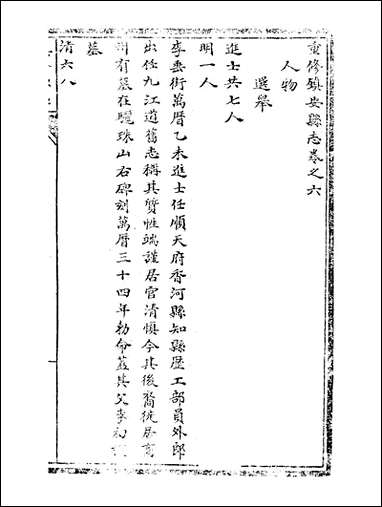 重修鎮安縣志卷之六
人物
選舉
進士共七人
明一人
李垂街萬曆乙未進士任順天府香河縣知縣歷工部員外郎
出任九江道舊志稱其質性端謹居官清慎今其後裔猶居
州有墓在曬珠山右碑刻萬曆三十四年勅命葢其父李初
墓
清六人